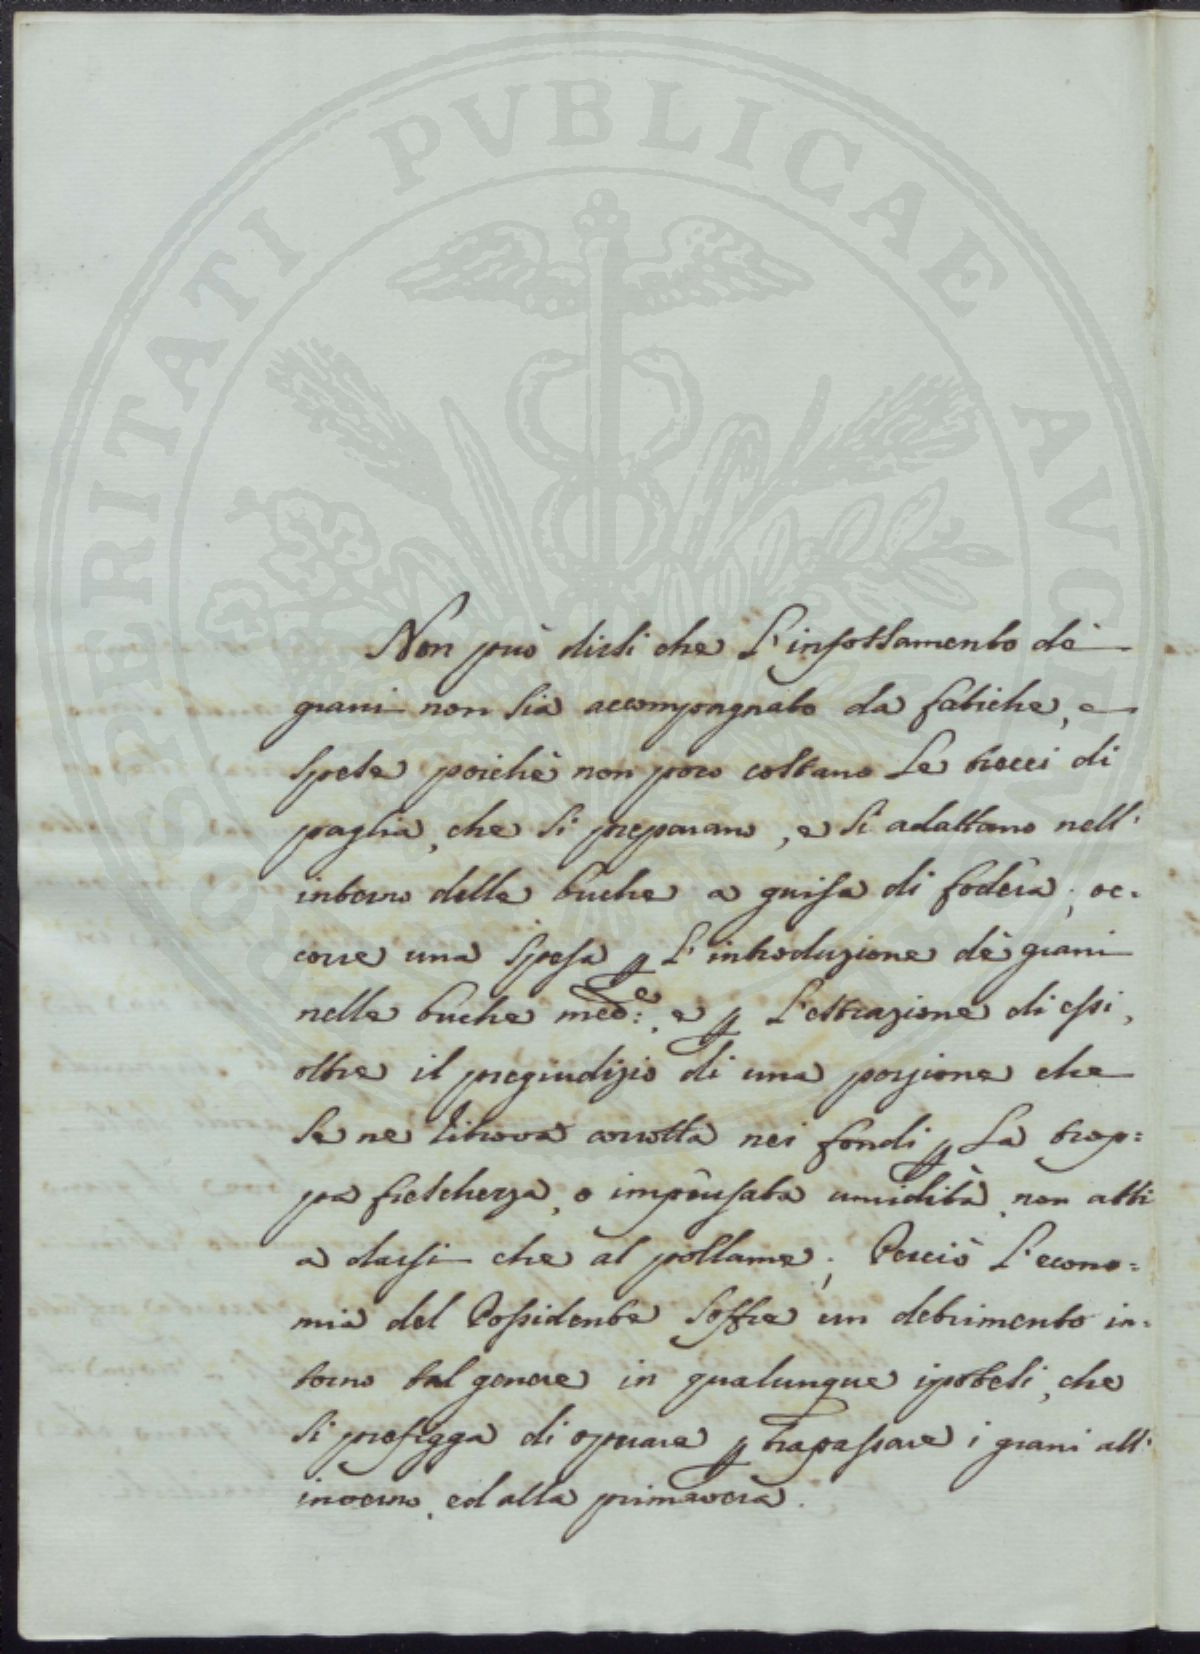 PROSPERITATI PUBLICAE AUGENDAE
Non può dirsi che l'infossamento de'
grani non sia accompagnato da fatiche, e
spese poichè non poco costano le trecci di
paglia, che si preparano, e si adattano nell'
interno delle buche a guisa di fodera; oc=
corre una spesa p l'introduzione de' grani
nelle buche med:e, e p l'estrazione di essi,
oltre il pregiudizio di una porzione che
se ne ritrova corrotta nei fondi p la trop=
pa freschezza, o impensata umidità, non atti
a darsi che al pollame; Perciò l'econo=
mia del Possidente soffre un detrimento in=
torno tal genere in qualunque ipotesi, che
si prefigga di operare p trapassare i grani all'
inverno, ed alla primavera.